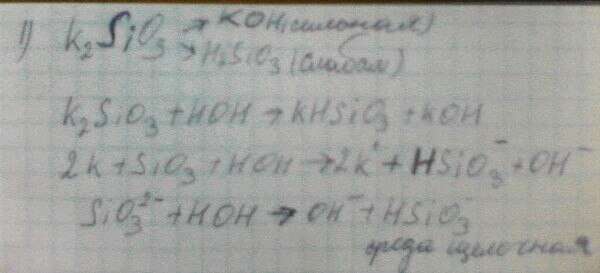 1) K₂SiO₃ → KOH (сильная)
→ H₂SiO₃ (слабая)
K₂SiO₃ + HOH → KHSiO₃ + KOH
2K + SiO₃ + HOH → 2K⁺ + HSiO₃⁻ + OH⁻
SiO₃²⁻ + HOH → OH⁻ + HSiO₃⁻
среда щелочная